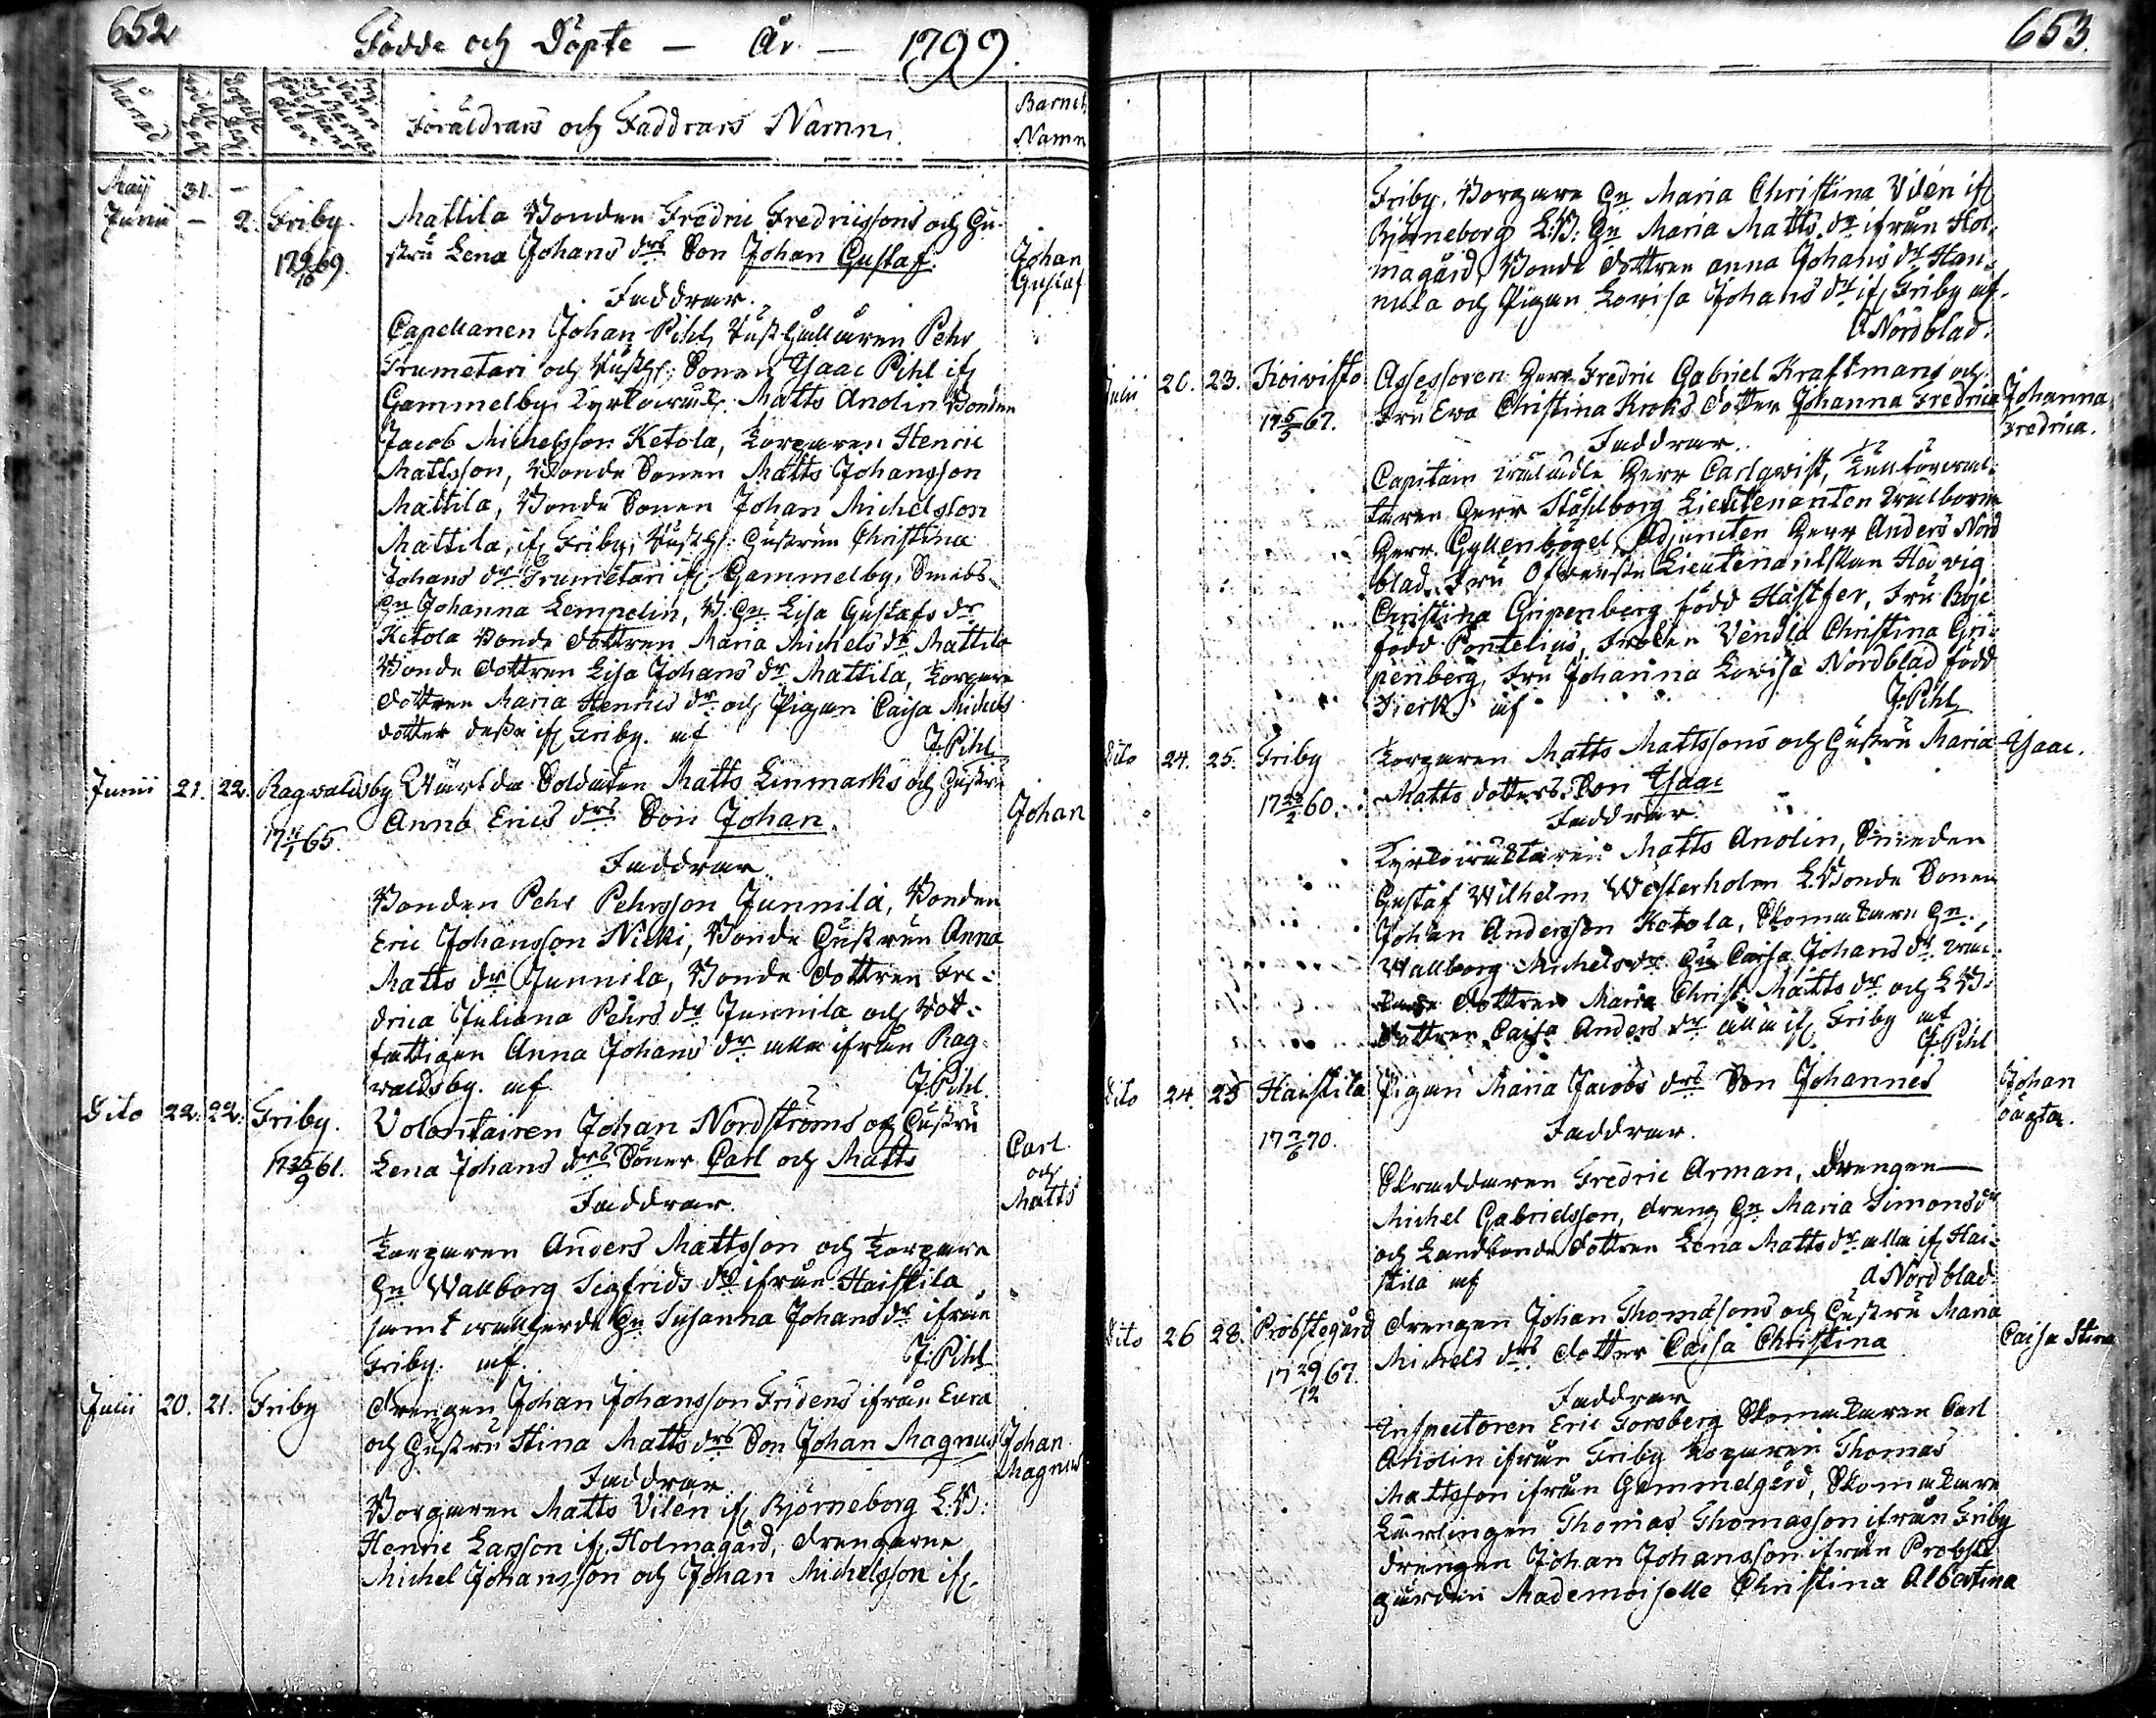 652
Födde och Döpte — År — 1799.
Månad
Födelse Dag
Döpelse Dag
Föräldrars och Faddrars Namn.
Barnets Namn
Maij 31. —
Junii — 2. Friby.
17 9/10 69.
Mattila Bonden Fredric Fredricssons och Hu-
stru Lena Johans drs Son Johan Gustaf.
Johan
Gustaf
Faddrar.
Capellanen Johan Pihl, Rusthållaren Pehr
Trumetari och Rusth: Sonen Ysaac Pihl if
Gammelby, Kyrkoväkt. Matts Anolin Bonden
Jacob Michelsson Ketola, Torparen Henric
Mattsson, Bonde Sonen Matts Johansson
Mattila, Bonde Sonen Johan Michelsson
Mattila, if Friby, Rusth: Hustrun Christina
Johans dr Trumetari if Gammelby, Smeds
Hu Johanna Lempelin, B: Hu Lisa Gustafs dr
Ketola Bonde dottren Maria Michels dr Mattila
Bonde dottren Lisa Johans dr Mattila, Torpare
dottren Maria Henrics dr och Pigan Caisa Michels
dotter dessa if Friby. af
J. Pihl
Junii 21. 22. Ragvaldsby
17 11/1 65.
Soldaten Matts Linmarks och Hustru
Anna Erics drs Son Johan.
Johan
Faddrar
Bonden Pehr Pehrsson Junnila, Bonden
Eric Johansson Nicki, Bonde Hustrun Anna
Matts dr Junnila, Bonde dottren Fre-
drica Juliana Pehrs dr Junnila och Rot-
fattigen Anna Johans dr alla ifrån Rag-
valdsby. af
J. Pihl.
Dito 22. 22. Friby.
17 25/9 61.
Volontairen Johan Nordströms och Hustru
Lena Johans drs Söner Carl och Matts
Carl
och
Matts
Faddrar.
Torparen Anders Mattsson och Torpare
Hu Wallborg Sigfrids dr ifrån Haistila
samt Hu Susanna Johans dr ifrån
Friby. af.
J. Pihl
Julii 20. 21. Friby
Drengen Johan Johansson Fridens ifrån Eura
och Hustru Stina Matts drs Son Johan Magnus
Johan
Magnus
Faddrar
Borgaren Matts Vilén if Björneborg L:B:
Henric Larsson if Holmagård, Drengarne
Michel Johansson och Johan Michelsson if
653.
Friby. Borgare Hu Maria Christina Vilén if
Björneborg L:B: Hu Maria Matts dr ifrån Hol-
magård, Bonde dottren Anna Johans dr Han-
nula och Pigan Lovisa Johans dr if Friby af
A Nordblad.
Julii 20. 23. Koivisto
17 5/5 67.
Assessoren Herr Fredric Gabriel Kraftmans och
Fru Eva Christina Kroks dotter Johanna Fredrica
Johanna
Fredrica.
Faddrar
Capitain Herr Carlqvist,
Herr Stålborg Lieutenanten Välborne
Herr Gyllenbögel, Adjuncten Herr Anders Nord
blad, Fru Lieutenantskan Hedvig
Christina Gripenberg född Hästfer, Fru Boje
född Pontelius, Fröken Vendla Christina Gri-
penberg, Fru Johanna Lovisa Nordblad född
af
J. Pihl
Dito 24. 25. Friby
17 23/2 60.
Torparen Matts Mattssons och Hustru Maria
Matts dotters Son Ysaac
Ysaac.
Faddrar.
Kyrkoväktaren Matts Anolin, Smeden
Gustaf Wilhelm Westerholm L:Bonde Sonen
Johan Andersson Ketola, Skomakare Hu
Wallborg Michelsdr Hu Caisa Johans dr
dottren Maria Christ: Matts dr och L B:
dottren Caisa Anders dr alla if Friby af
J. Pihl
Dito 24. 25 Haistila
17 7/6 70.
Pigan Maria Jacobs drs Son Johannes
Johan
oägta.
Faddrar.
Skraddaren Fredric Arman, drengen
Michel Gabrielsson, dreng Hu Maria Simons dr
och Landbonde dottren Lena Matts dr alla if Hai-
stila af
A Nordblad
Dito 26 28. Probstegård
17 29/12 67.
Drengen Johan Thomassons och Hustru Maria
Michels drs dotter Caisa Christina
Caisa Stina
Faddrar
Inspectoren Eric Forsberg Skomakaren Carl
Anolin ifrån Friby Torparen Thomas
Mattsson ifrån Gammelgård, Skomakare
Lärlingen Thomas Thomasson ifrån Friby
drengen Johan Johansson ifrån Probste
gården Mademoiselle Christina Albertina